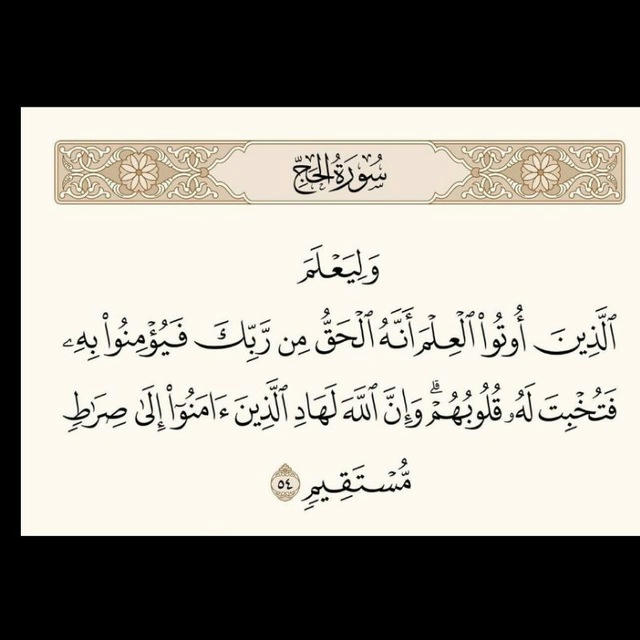 سُورَةُ الحَجِّ
وَلِيَعْلَمَ
ٱلَّذِينَ أُوتُوا۟ ٱلْعِلْمَ أَنَّهُ ٱلْحَقُّ مِن رَّبِّكَ فَيُؤْمِنُوا۟ بِهِۦ
فَتُخْبِتَ لَهُۥ قُلُوبُهُمْ ۗ وَإِنَّ ٱللَّهَ لَهَادِ ٱلَّذِينَ ءَامَنُوٓا۟ إِلَىٰ صِرَٰطٍ
مُّسْتَقِيمٍ ٥٤